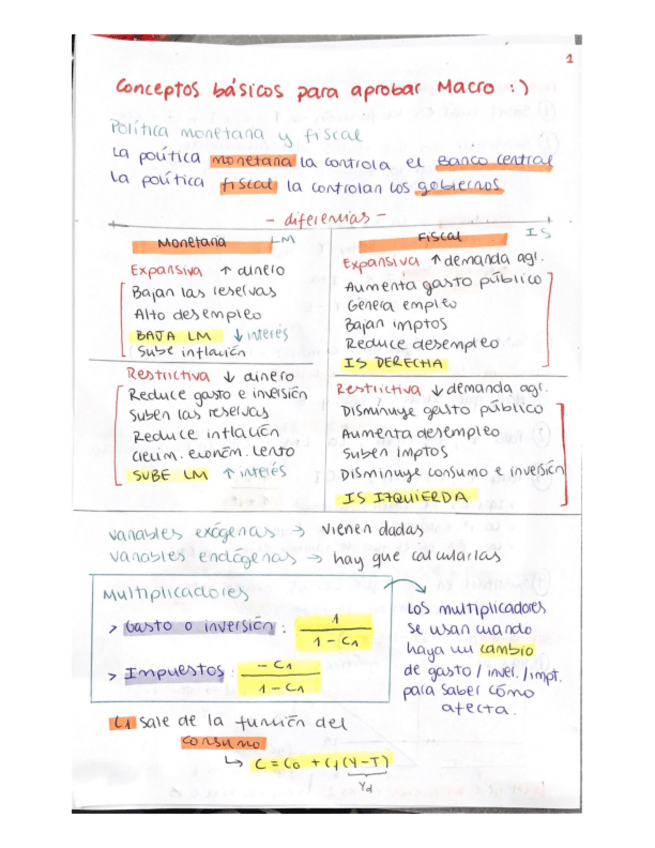 1
Conceptos básicos para aprobar Macro :)
Política monetaria y fiscal
La política monetaria la controla el Banco central
La política fiscal la controlan los gobiernos
- diferencias -
Monetaria LM
Expansiva ↑ dinero
Bajan las reservas
Alto desempleo
BAJA LM ↓ interés
Sube inflación
Restrictiva ↓ dinero
Reduce gasto e inversión
Suben las reservas
Reduce inflación
Crecim. económ. lento
SUBE LM ↑ interés
Fiscal IS
Expansiva ↑ demanda agr.
Aumenta gasto público
Genera empleo
Bajan imptos
Reduce desempleo
IS DERECHA
Restrictiva ↓ demanda agr.
Disminuye gasto público
Aumenta desempleo
Suben imptos
Disminuye consumo e inversión
IS IZQUIERDA
variables exógenas → vienen dadas
variables endógenas → hay que calcularlas
Multiplicadores
> Gasto o inversión : 1 / 1 - C1
> Impuestos : - C1 / 1 - C1
Los multiplicadores
se usan cuando
haya un cambio
de gasto / inver. / impt.
para saber cómo
afecta.
C1 sale de la función del
consumo
↳ C = C0 + C1 (Y - T)
Yd